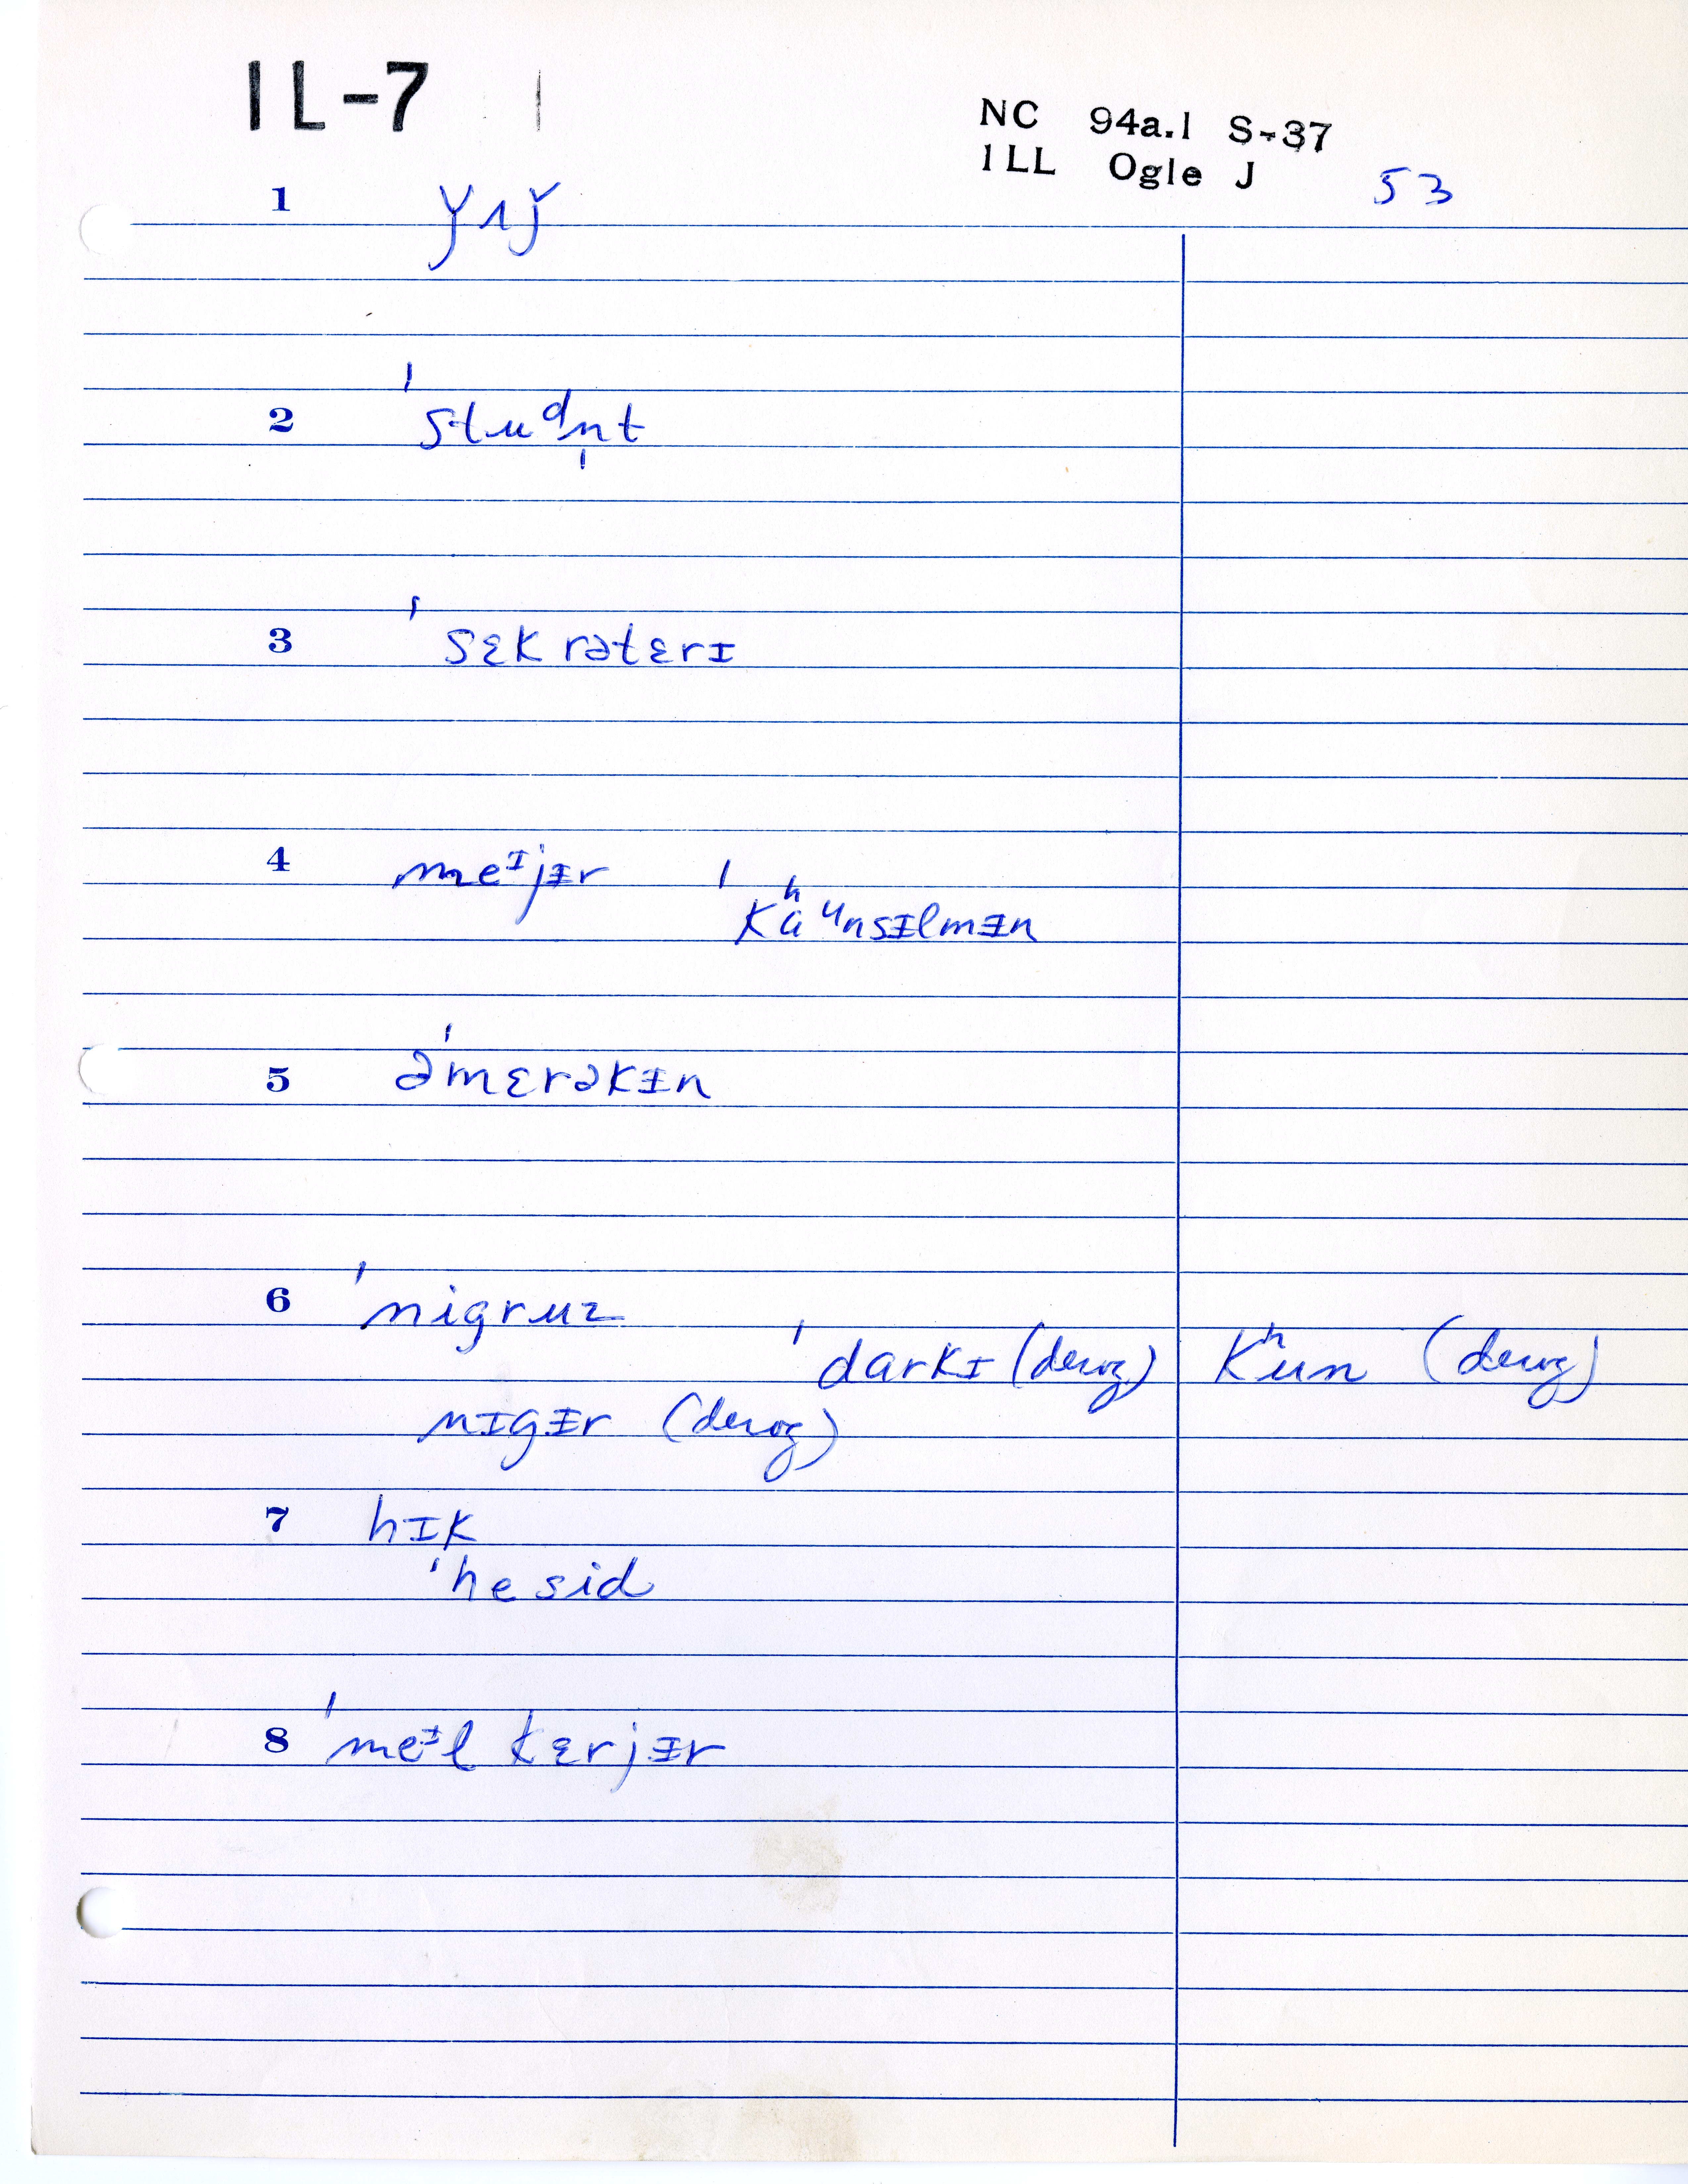 IL-7
NC 94a.1 S-37
ILL Ogle J 53
1 ǰʌǰ
2 ˈstudn̩t
3 ˈsɛkrətɛrɪ
4 meᶦjɨr ˈkʰaᵘnsɨlmɨn
5 əˈmɛrəkɨn
6 ˈnigruz
ˈdarkɪ (derog) kʰun (derog)
nɪgɨr (derog)
7 hɪk
ˈhesid
8 ˈmeᶦl kɛrjɨr